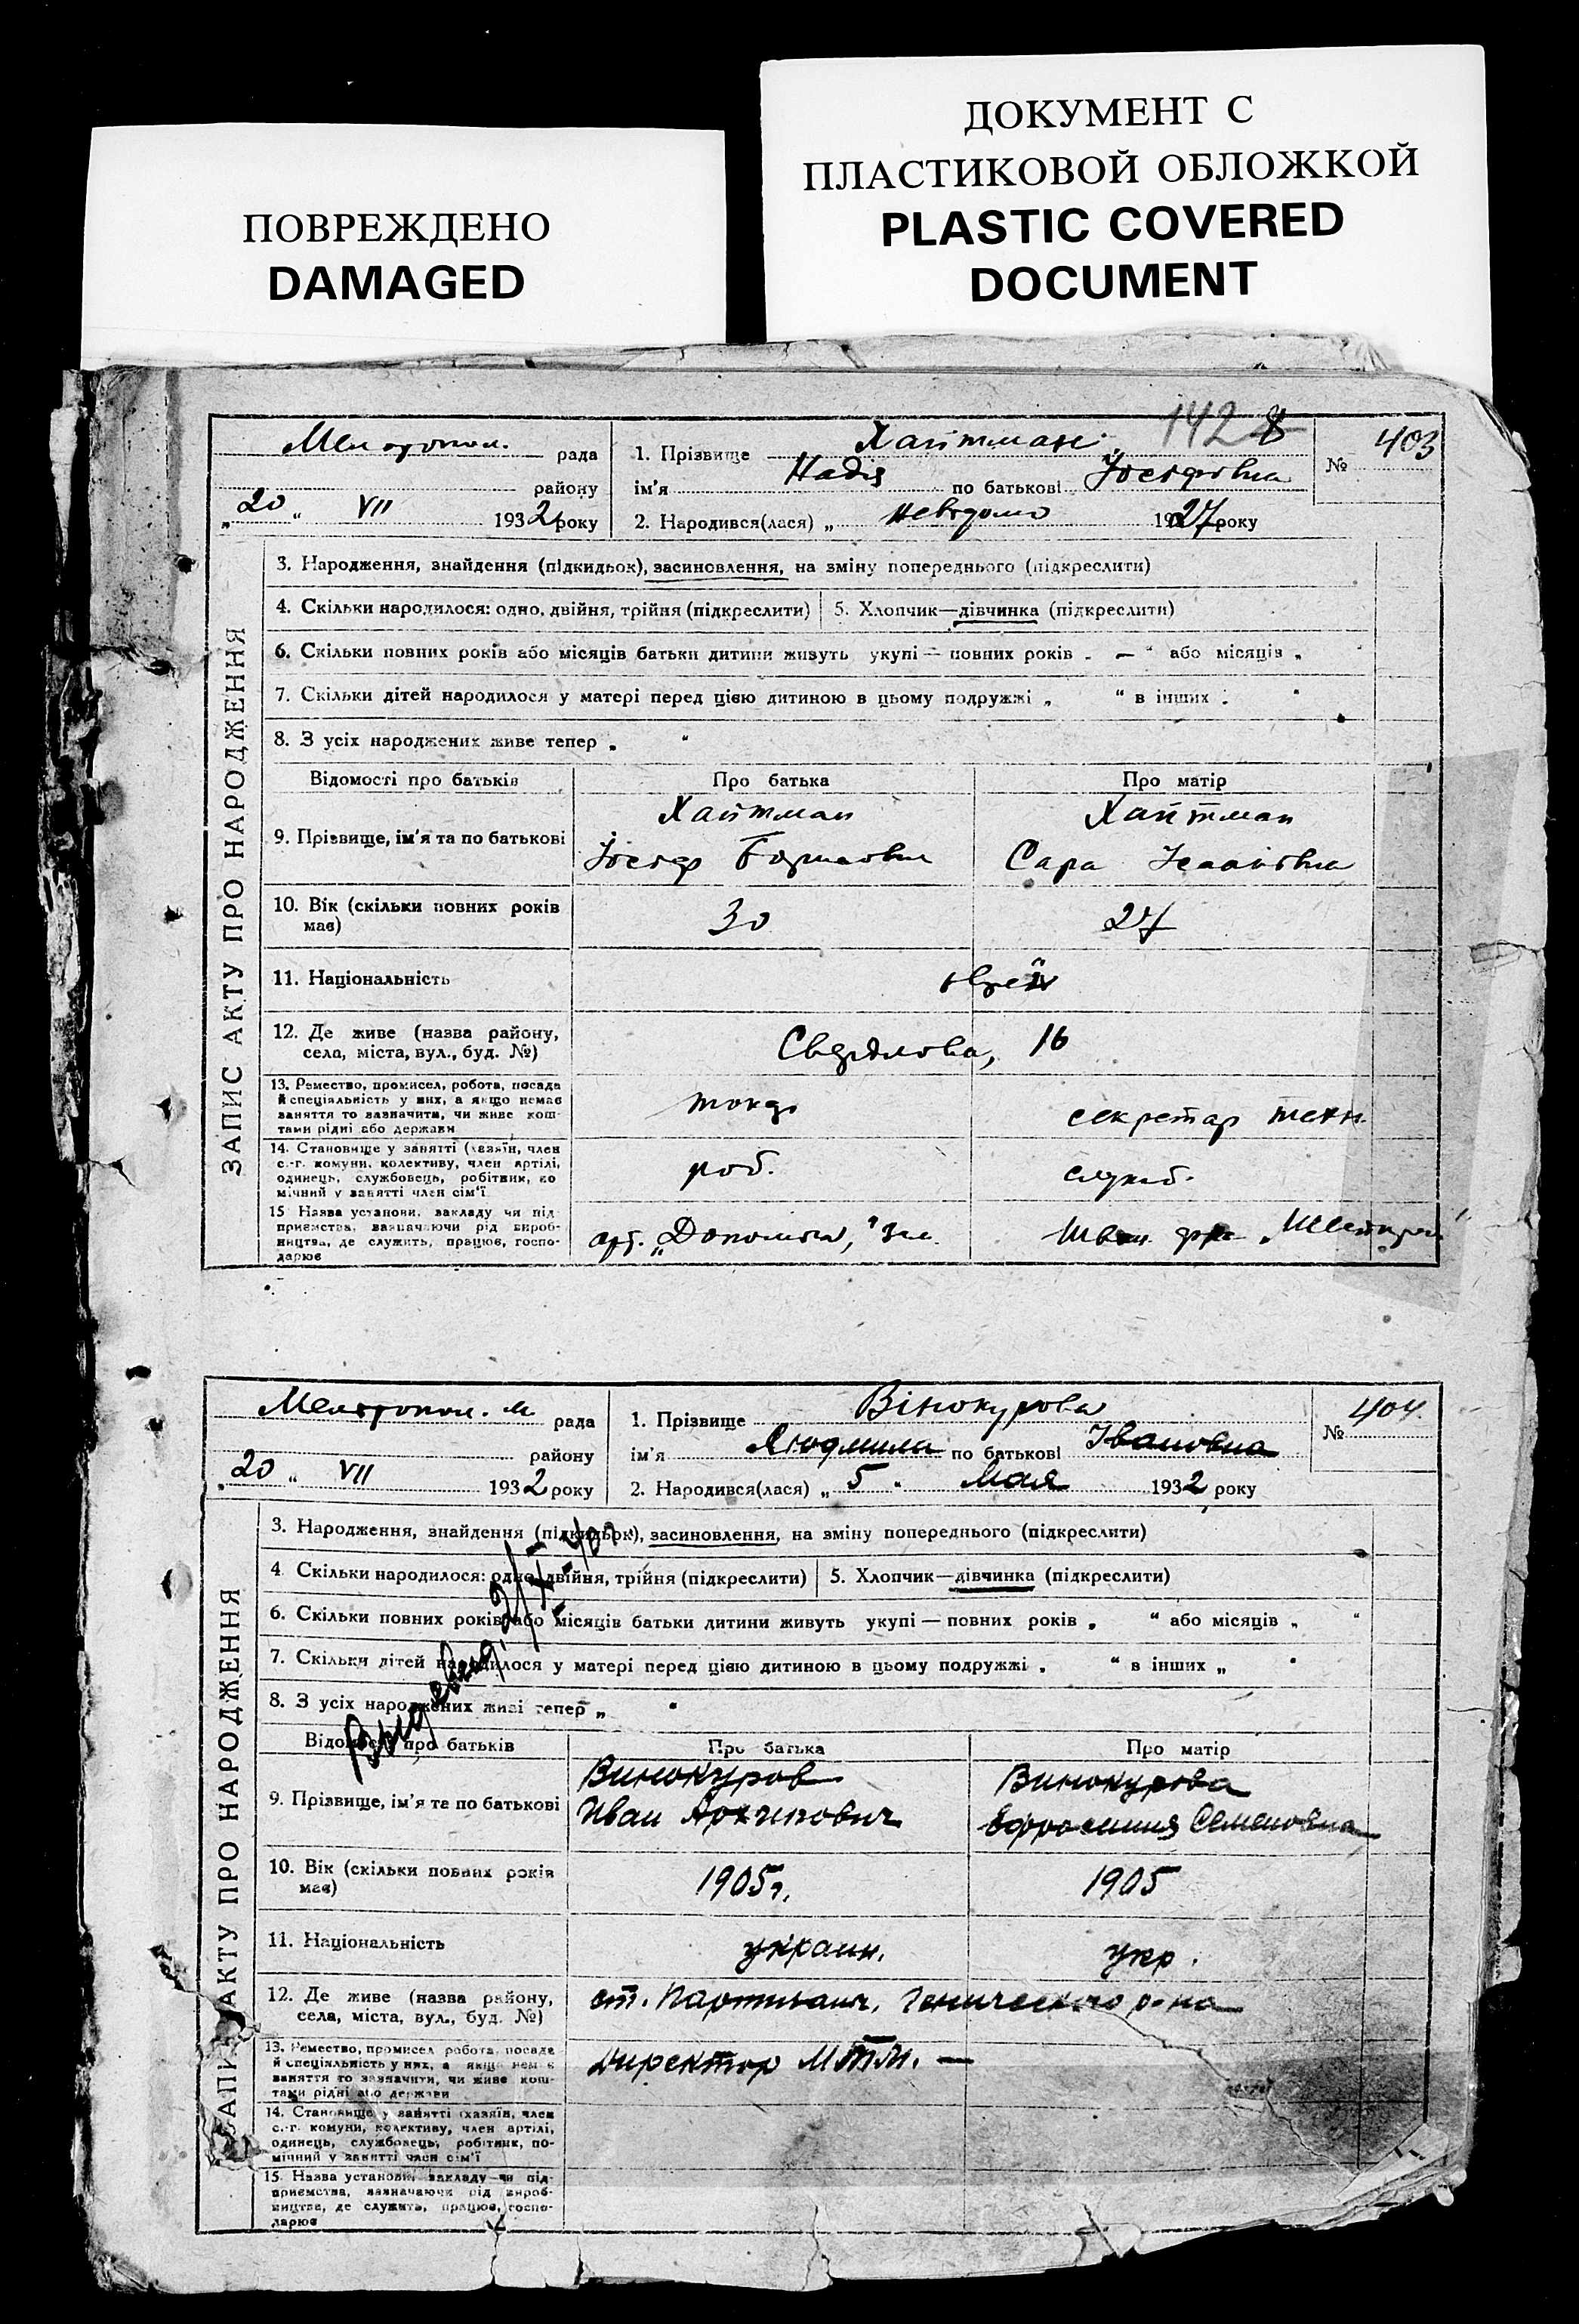 ПОВРЕЖДЕНО
DAMAGED
ДОКУМЕНТ С
ПЛАСТИКОВОЙ ОБЛОЖКОЙ
PLASTIC COVERED
DOCUMENT
142 8
ЗАПИС АКТУ ПРО НАРОДЖЕННЯ
Мелітопол. рада
району
„20“ VII 1932 року
1. Прізвище Хайтман
ім'я Надія по батькові Йосифівна
2. Народився(лася) „ невідомо 1927 року
№ 403
3. Народження, знайдення (підкидьок), засиновлення, на зміну попереднього (підкреслити)
4. Скільки народилося: одно, двійня, трійня (підкреслити) 5. Хлопчик—дівчинка (підкреслити)
6. Скільки повних років або місяців батьки дитини живуть укупі — повних років „ — “ або місяців „ “
7. Скільки дітей народилося у матері перед цією дитиною в цьому подружжі „ “ в інших „ “
8. З усіх народжених живе тепер „ “
Відомості про батьків Про батька Про матір
9. Прізвище, ім'я та по батькові
Хайтман Хайтман
Йосиф Сара
10. Вік (скільки повних років має) 30 27
11. Національність євреї
12. Де живе (назва району, села, міста, вул., буд. №) Свердлова, 16
13. Ремество, промисел, робота, посада
й спеціяльність у них, а якщо немає
заняття то зазначити, чи живе кош-
тами рідні або держави
токар секретар техн.
14. Становище у занятті (хазяїн, член
с.-г. комуни, колективу, член артілі,
одинець, службовець, робітник, по
мічний у занятті член сім'ї
роб. служб.
15 Назва установи, закладу чи під
приємства, зазначаючи рід вироб-
ництва, де служить, працює, госпо-
дарює
арт. „Допомога,“ Швейн. ф-ка
ЗАПИС АКТУ ПРО НАРОДЖЕННЯ
Мелітопол. м рада
району
„20“ VII 1932 року
1. Прізвище Вінокурова
ім'я Людмила по батькові Івановна
2. Народився(лася) „ 5 “ Мая 1932 року
№ 404.
3. Народження, знайдення (підкидьок), засиновлення, на зміну попереднього (підкреслити)
4 Скільки народилося: одно, двійня, трійня (підкреслити) 5. Хлопчик—дівчинка (підкреслити)
6. Скільки повних років або місяців батьки дитини живуть укупі — повних років „ “ або місяців „ “
7. Скільки дітей народилося у матері перед цією дитиною в цьому подружжі „ “ в інших „ “
8. З усіх народжених живі тепер „ “
Відомості про батьків Про батька Про матір
9. Прізвище, ім'я та по батькові
Винокуров Винокурова
Иван Архипович Ефросиния Семеновна
10. Вік (скільки повних років має) 1905г. 1905
11. Національність украин. укр.
12. Де живе (назва району, села, міста, вул., буд. №) ст. Партизаны, Генического р-на
13. Ремество, промисел робота, посада
й спеціяльність у них, а якщо немає
заняття то зазначити, чи живе кош-
тами рідні або держави
Директор МТМ. —
14. Становище у занятті (хазяїн, член
с.-г. комуни, колективу, член артілі,
одинець, службовець, робітник, по-
мічний у занятті член сім'ї
15. Назва установи, закладу чи під-
приємства, зазначаючи рід вироб-
ництва, де служить, працює, госпо-
дарює